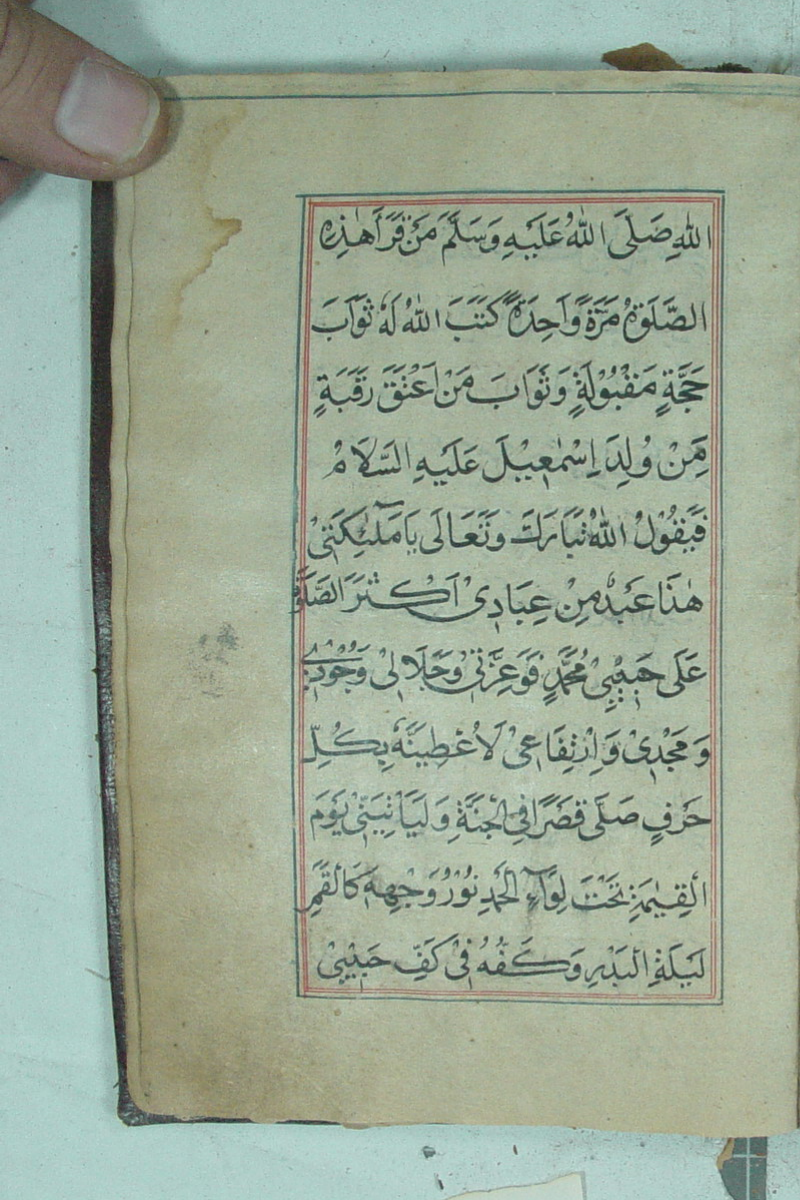 اللهِ صَلَّى اللهُ عَلَيْهِ وَسَلَّمَ مَنْ قَرَأَ هٰذِهِ
الصَّلَوةَ مَرَّةً وَّاحِدَةً كَتَبَ اللهُ لَهُ ثَوَابَ
حَجَّةٍ مَقْبُوْلَةٍ وَثَوَابَ مَنْ اَعْتَقَ رَقَبَةٍ
مِّنْ وُلِدَ اِسْمٰعِيْلَ عَلَيْهِ السَّلَامْ
فَيَقُوْلُ اللهُ تَبَارَكَ وَتَعَالَى يَا مَلٰٓئِكَتِىْ
هٰذَا عَبْدٌ مِنْ عِبَادِىْ اَكْثَرَ الصَّلٰوةَ
عَلَى حَبِيْبِىْ مُحَمَّدٍ فَوَعِزَّتِىْ وَجَلَالِىْ وَجُوْدِىْ
وَمَجْدِىْ وَاِرْتِفَاعِىْ لَاُعْطِيَنَّهُ بِكُلِّ
حَرْفٍ صَلَّى قَصْرًا فِى الْجَنَّةِ وَلَيَأْتِيَنِّىْ يَوْمَ
الْقِيٰمَةِ تَحْتَ لِوَآءِ الْحَمْدِ نُوْرُ وَجْهِهِ كَالْقَمَرِ
لَيْلَةِ الْبَدْرِ وَكَفُّهُ فِىْ كَفِّ حَبِيْبِىْ